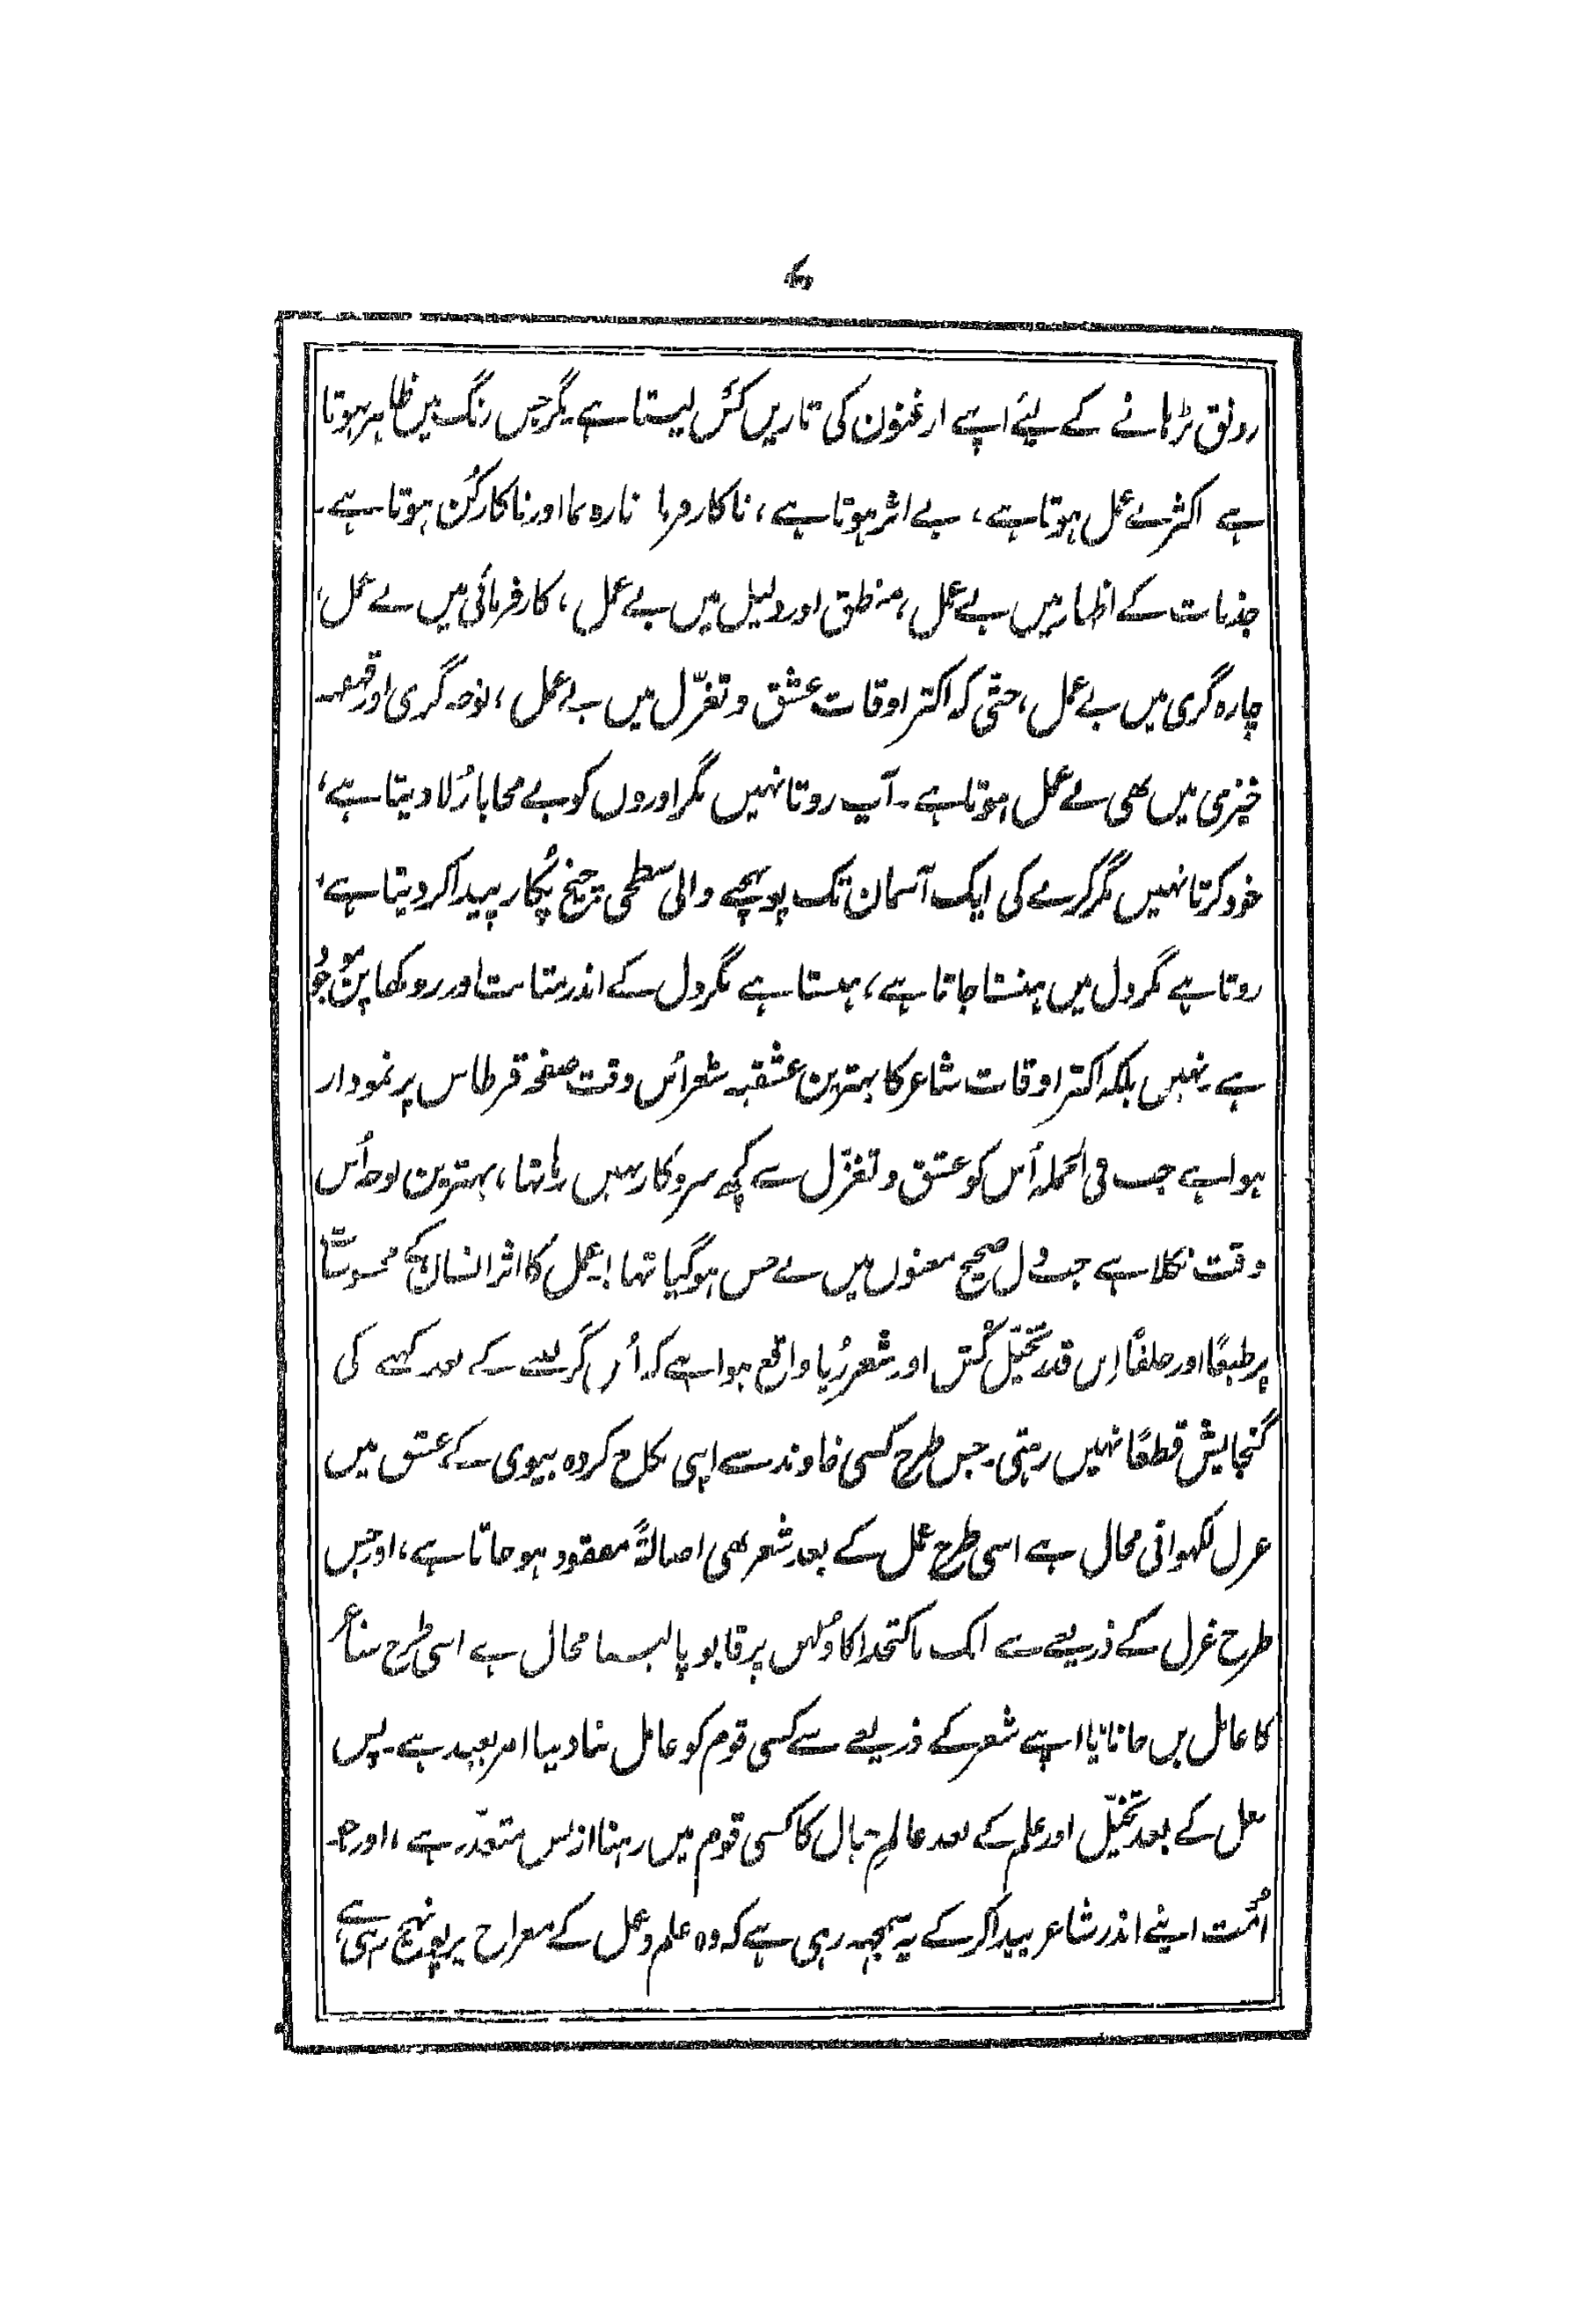 رونق بڑہانے کے لیئے اپنے ارغنون کی تاریں کَس لیتا ہے۔ مگر جس رنگ میں ظاہر ہوتا
ہے اکثر بے عمل ہوتا ہے، بے اثر ہوتا ہے، ناکارہ نما اور ناکارکُن ہوتا ہے۔
جذبات کے اظہار میں بے عمل، منطق اور دلیل میں بے عمل، کارفرمائی میں بے عمل،
چارہ گری میں بے عمل، حتّیٰ کہ اکثر اوقات عشق و تغزّل میں بے عمل، نوحہ گری اور قہقہہ
خیزی میں بھی بے عمل ہوتا ہے۔ آپ روتا نہیں مگر اوروں کو بے محابا رُلا دیتا ہے،
خود کرتا نہیں مگر کرنے کی ایک آسمان تک پہونچنے والی سطحی چیخ پُکار پیدا کر دیتا ہے،
روتا ہے مگر دل میں ہنستا جاتا ہے، ہنستا ہے مگر دل کے اندر متانت اور روکھا پن موجود
ہے۔ نہیں بلکہ اکثر اوقات شاعر کا بہترین عشقیہ شعر اُس وقت صفحۂ قرطاس پر نمودار
ہوا ہے جب فی الجملہ اُس کو عشق و تغزّل سے کچھ سروکار نہیں رہا تھا، بہترین نوحہ اُس
وقت نکلا ہے جب دل صحیح معنوں میں بے حس ہو گیا تھا! عمل کا اثر انسان کے محسوسات
پر طبعًا اور خلقًا اِس قدر تخیّل کُش اور شعر رُبا واقع ہوا ہے کہ اُس کر لینے کے بعد کہنے کی
گنجایش قطعًا نہیں رہتی۔ جس طرح کسی خاوند سے اپنی نکاح کردہ بیوی کے عشق میں
غزل لکھوانی محال ہے اسی طرح عمل کے بعد شعر بھی اصالةً مفقود ہو جاتا ہے، اور جس
طرح غزل کے ذریعے سے ایک ناکتخدا کا دلہن پر قابو پا لینا محال ہے اسی طرح شاعر
کا عامل بن جانا یا اپنے شعر کے ذریعے سے کسی قوم کو عامل بنا دینا امرِ بعید ہے۔ پس
عمل کے بعد تخیّل اور علم کے بعد عالمِ خیال کا کسی قوم میں رہنا از بس متعذّر ہے، اور جو
اُمّت اپنے اندر شاعر پیدا کر کے یہ سمجھ رہی ہے کہ وہ علم و عمل کے معراج پر پہونچ رہی ہے،